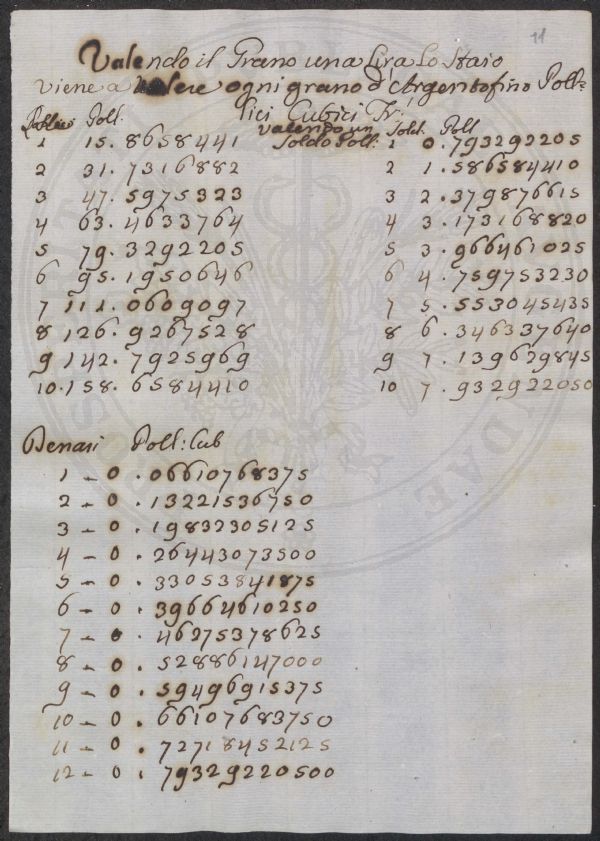 11
Valendo il Grano una Lira lo Staio
viene a Valere ogni grano d'Argento fino Poll=
lici Cubici Fr:
Poll:
1 15. 8658441
2 31. 7316882
3 47. 5975323
4 63. 4633764
5 79. 3292205
6 95. 1950646
7 111. 0609097
8 126. 9267528
9 142. 7925969
10. 158. 6584410
valendo un Sold. Poll
Soldo Poll: 1 0.793292205
2 1.586584410
3 2.379876615
4 3.173168820
5 3.966461025
6 4.759753230
7 5.553045435
8 6.346337640
9 7.139629845
10 7.932922050
Denari Poll: Cub
1 - 0.06610768375
2 - 0.13221536750
3 - 0.19832305125
4 - 0.26443073500
5 - 0.33053841875
6 - 0.39664610250
7 - 0.46275378625
8 - 0.52886147000
9 - 0.59496915375
10 - 0.66107683750
11 - 0.72718452125
12 - 0.79329220500